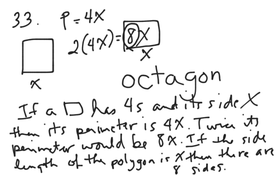 33. P = 4X
2(4X) = 8X
X
X
octagon
If a □ has 4s and its side X
then its perimeter is 4X. Twice its
perimeter would be 8X. If the side
length of the polygon is X then there are
8 sides.